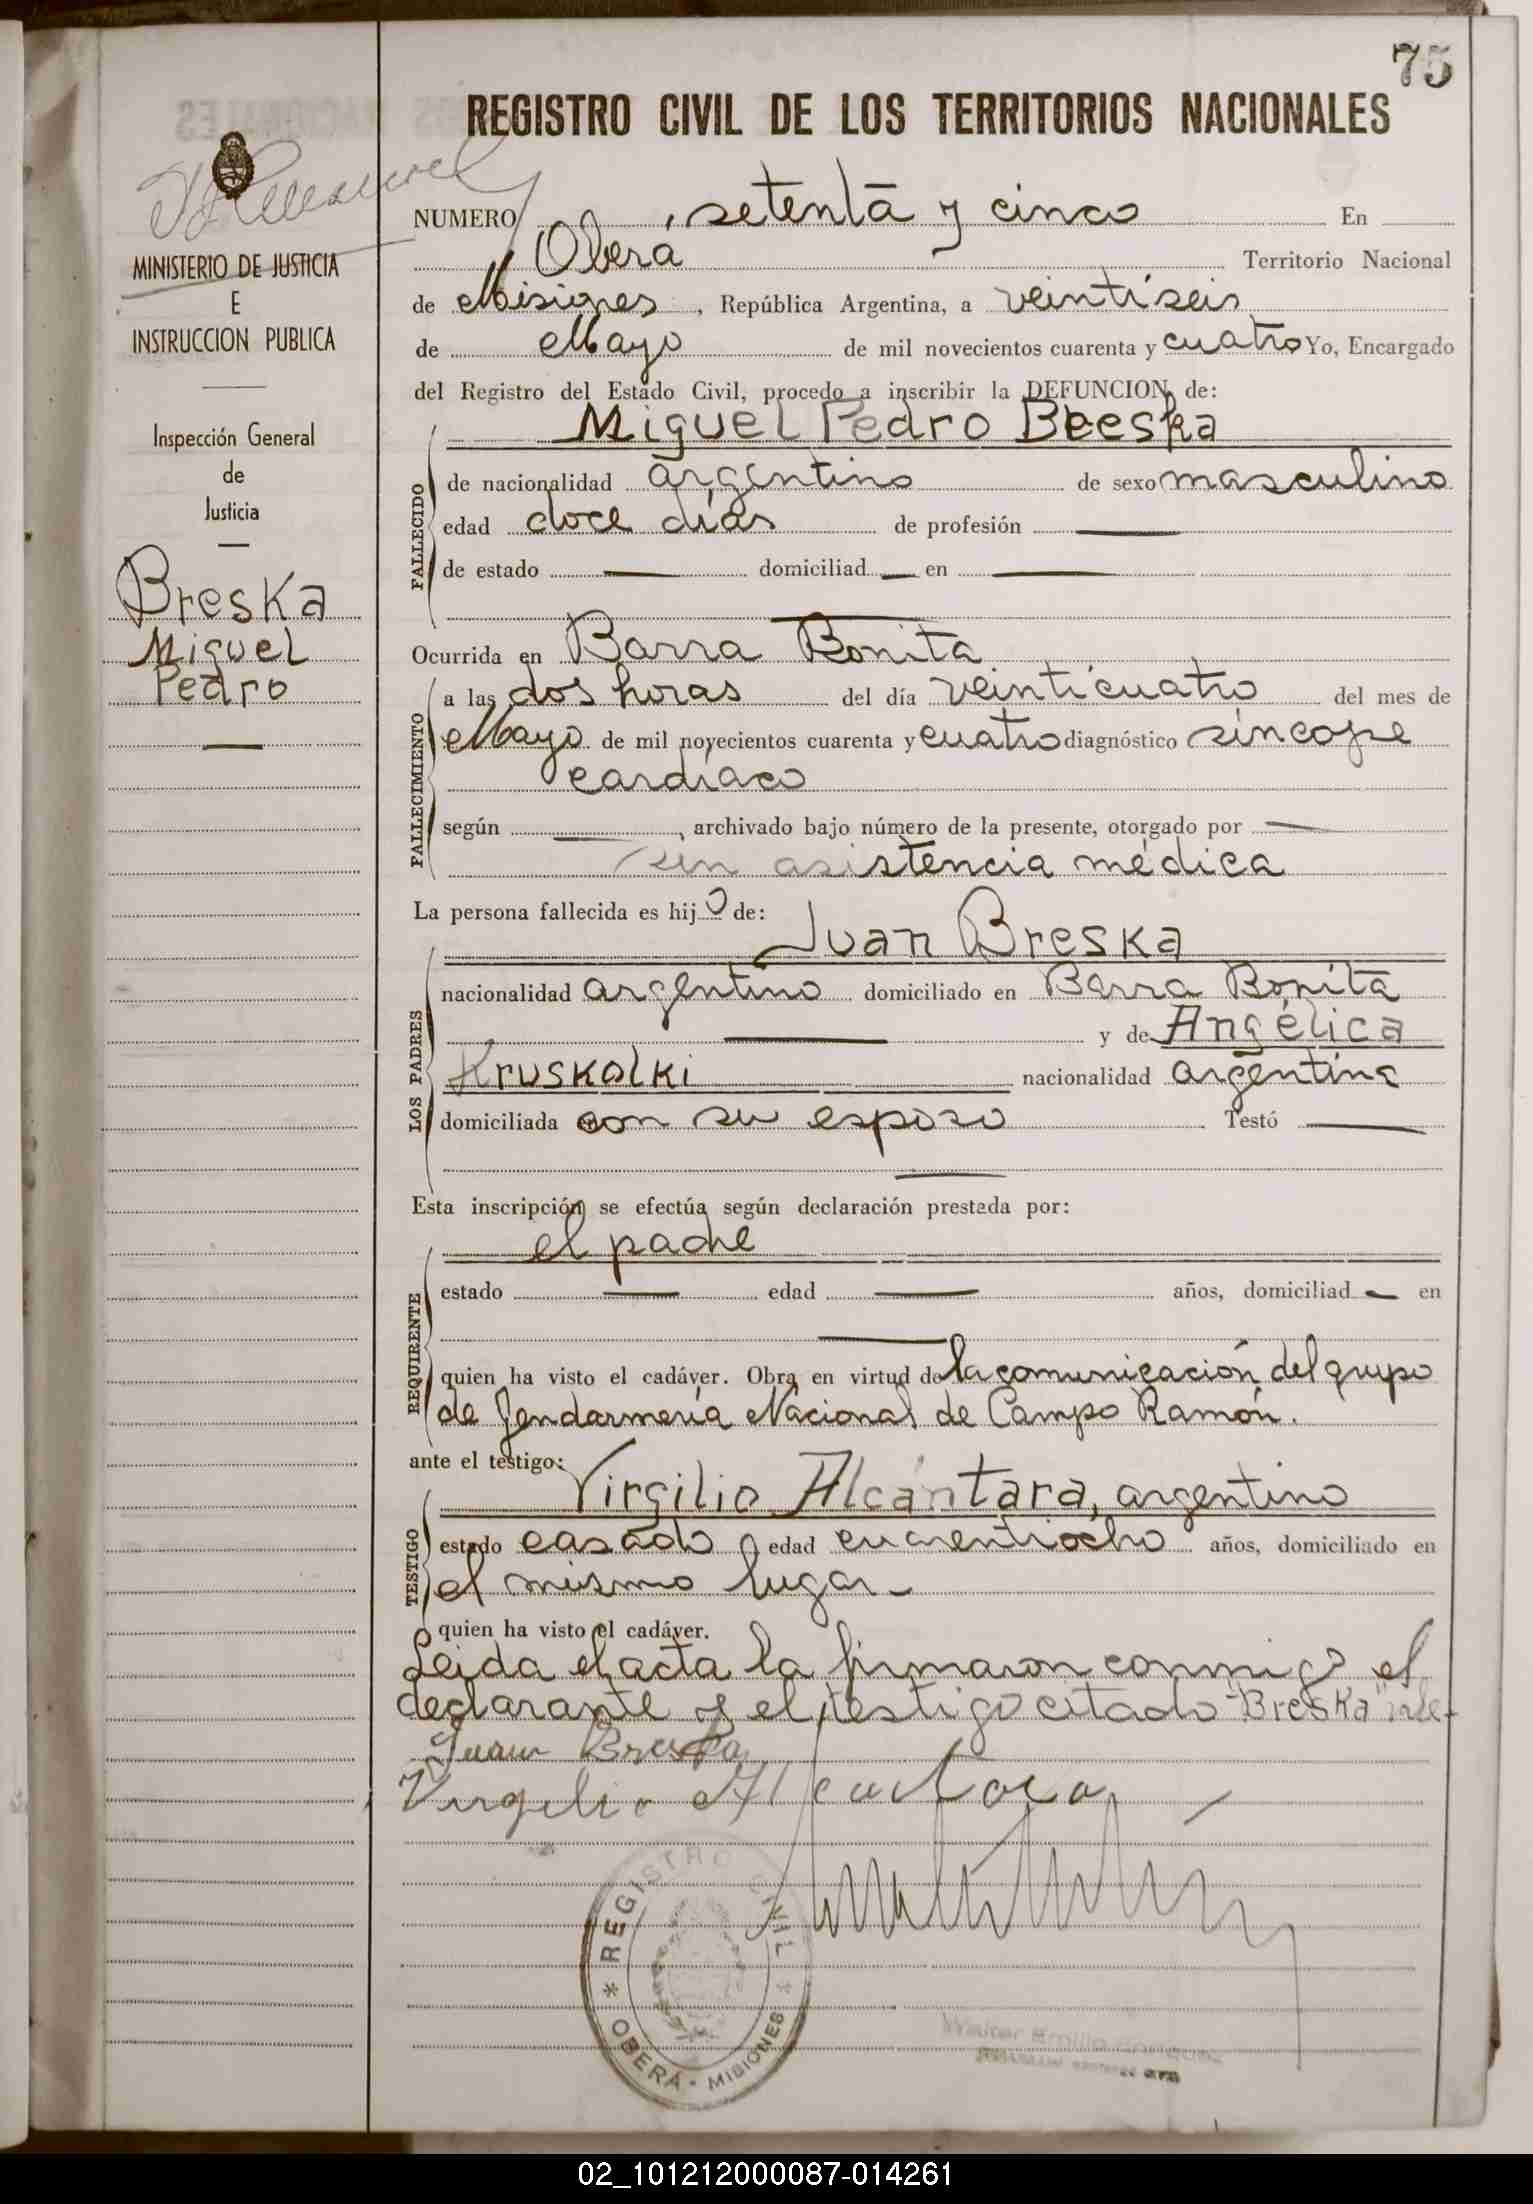 75
REGISTRO CIVIL DE LOS TERRITORIOS NACIONALES
MINISTERIO DE JUSTICIA
E
INSTRUCCION PUBLICA
Inspección General
de
Justicia
Breska
Miguel
Pedro
NUMERO setenta y cinco En
Oberá Territorio Nacional
de Misiones, República Argentina, a veintiseis
de Mayo de mil novecientos cuarenta y cuatro Yo, Encargado
del Registro del Estado Civil, procedo a inscribir la DEFUNCION de:
Miguel Pedro Breska
FALLECIDO
de nacionalidad argentino de sexo masculino
edad doce días de profesión —
de estado — domiciliad — en —
Ocurrida en Barra Bonita
FALLECIMIENTO
a las dos horas del día veinticuatro del mes de
Mayo de mil novecientos cuarenta y cuatro diagnóstico síncope
cardíaco
según —, archivado bajo número de la presente, otorgado por —
sin asistencia médica
La persona fallecida es hijo de:
Juan Breska
LOS PADRES
nacionalidad argentino domiciliado en Barra Bonita
— y de Angélica
Kruskolki nacionalidad argentina
domiciliada con su esposo Testó —
Esta inscripción se efectúa según declaración prestada por:
el padre
REQUIRENTE
estado — edad — años, domiciliad — en
—
quien ha visto el cadáver. Obra en virtud de la comunicación del grupo
de Gendarmería Nacional de Campo Ramón.
ante el testigo:
Virgilio Alcántara, argentino
TESTIGO
estado casado edad cuarentiocho años, domiciliado en
el mismo lugar
quien ha visto el cadáver.
Leida el acta la firmaron conmigo el
declarante y el testigo citado "Breska"
Juan Breska
Virgilio Alcantara
REGISTRO CIVIL
* OBERÁ - MISIONES *
Walter Emilio
02_101212000087-014261